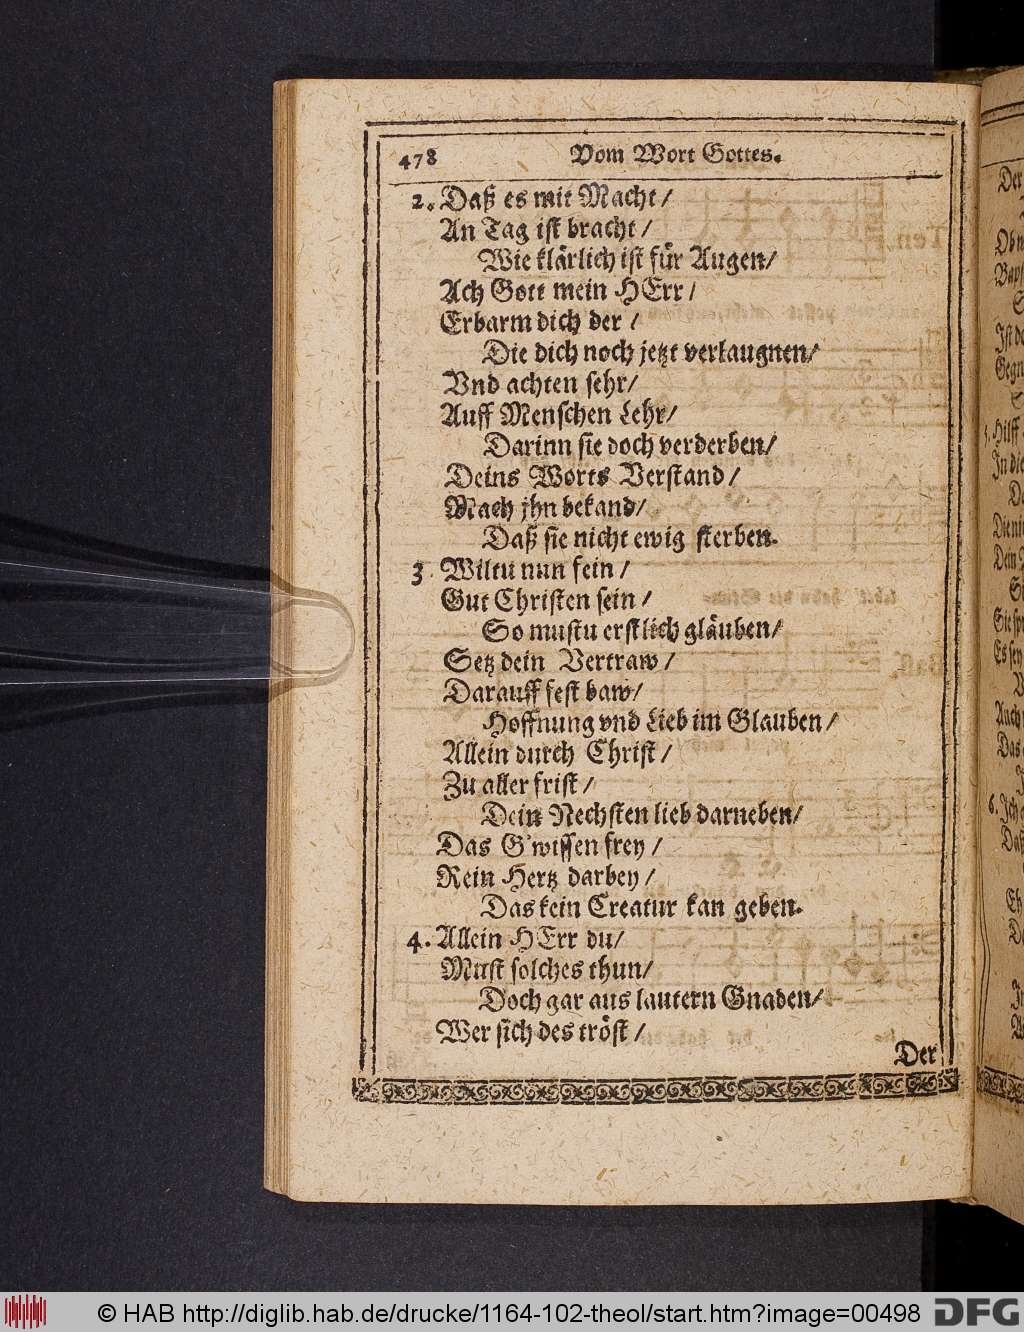 478 Vom Wort Gottes.
2. Daß es mit Macht /
An Tag ist bracht /
Wie klärlich ist für Augen /
Ach Gott mein HErr /
Erbarm dich der /
Die dich noch jetzt verlaugnen /
Vnd achten sehr /
Auff Menschen Lehr /
Darinn sie doch verderben /
Deins Worts Verstand /
Mach jhn bekand /
Daß sie nicht ewig sterben.
3. Wiltu nun fein /
Gut Christen sein /
So mustu erstlich gläuben /
Setz dein Vertraw /
Darauff fest baw /
Hoffnung vnd Lieb im Glauben /
Allein durch Christ /
Zu aller frist /
Dein Nechsten lieb darneben /
Das G'wissen frey /
Rein Hertz darbey /
Das kein Creatur kan geben.
4. Allein HErr du /
Must solches thun /
Doch gar aus lautern Gnaden /
Wer sich des tröst /
Der
© HAB http://diglib.hab.de/drucke/1164-102-theol/start.htm?image=00498
DFG